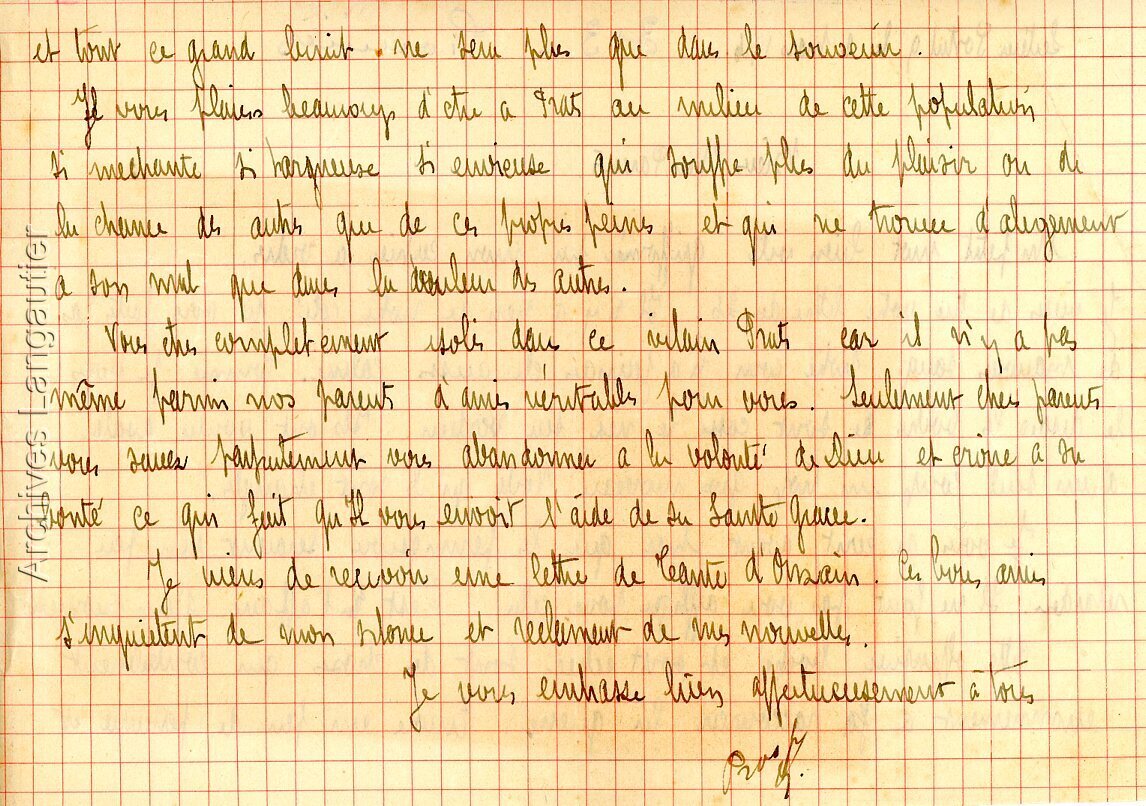 et tout ce grand bruit ne sera plus que dans le souvenir.
Je vous plains beaucoup d'etre a Prats au milieu de cette population
si mechante si hargneuse si envieuse qui souffre plus du plaisir ou de
la chance des autres que de ces propres peines et qui ne trouve d'alegement
a son mal que dans la douleur des autres.
Vous etes completement isolés dans ce vilain Prats car il n'y a pas
même parmi nos parents d'amis véritables pour vous. Seulement chers parents
vous savez parfaitement vous abandonner a la volonté de Dieu et croire a sa
bonté ce qui fait qu'Il vous envoit l'aide de sa Sainte Grace.
Je viens de recevoir une lettre de Tante d'Orsain. Ces bons amis
s'inquietent de mon silence et reclament de mes nouvelles.
Je vous embrasse bien affectueusement à tous
Archives Langautier